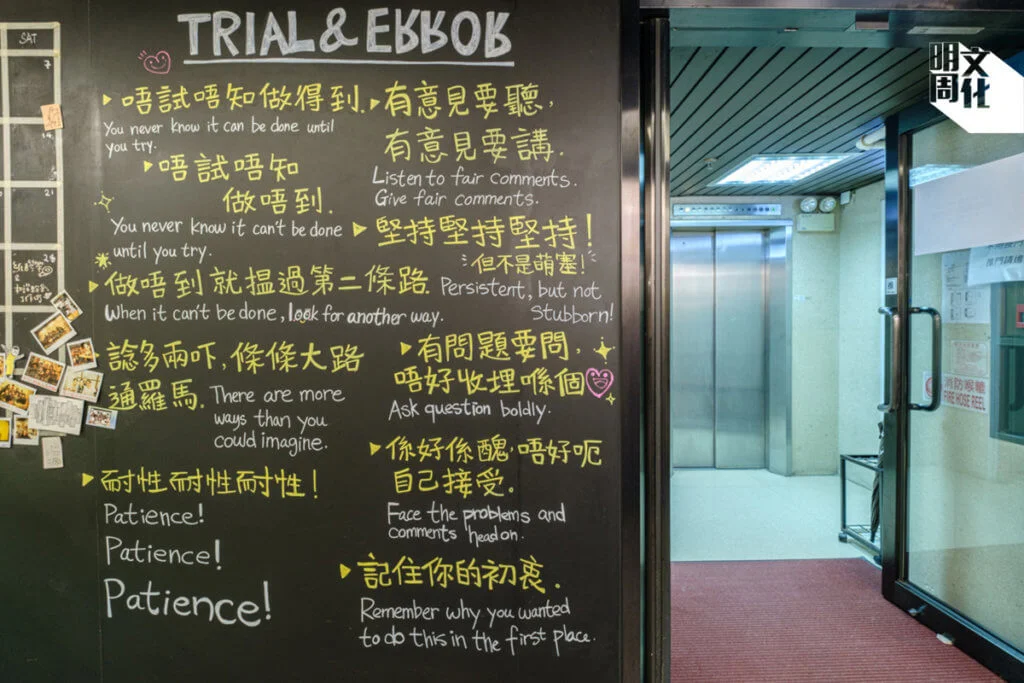 TRIAL & ERROR
唔試唔知做得到.
You never know it can be done until
you try.
唔試唔知
做唔到.
You never know it can't be done
until you try.
做唔到就搵過第二條路.
When it can't be done, look for another way.
諗多兩吓, 條條大路
通羅馬.
There are more
ways than you
could imagine.
耐性耐性耐性!
Patience!
Patience!
Patience!
有意見要聽,
有意見要講.
Listen to fair comments.
Give fair comments.
堅持堅持堅持!
但不是萌塞!
Persistent, but not
Stubborn!
有問題要問,
唔好收埋喺個
Ask question boldly.
係好係醜, 唔好呃
自己接受.
Face the problems and
comments headon.
記住你的初衷.
Remember why you wanted
to do this in the first place.
SAT
7
14
21
28
明周
文化
消防喉轆
FIRE HOSE REEL